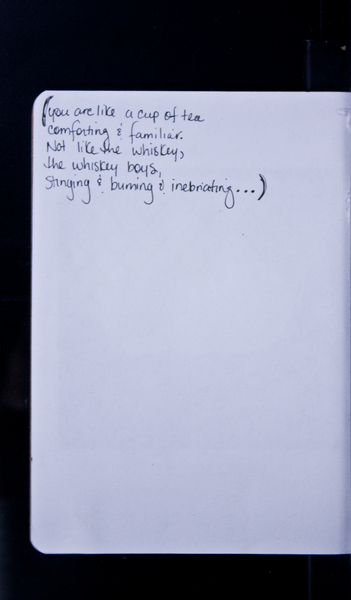 (you are like a cup of tea
comforting & familiar.
Not like the whiskey,
the whiskey boys,
stinging & burning & inebriating...)